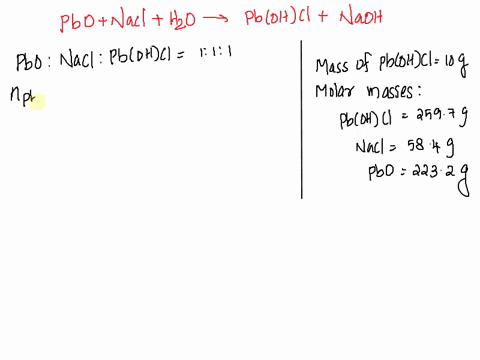 PbO + NaCl + H2O → Pb(OH)Cl + NaOH
PbO : NaCl : Pb(OH)Cl = 1:1:1
nPb
Mass of Pb(OH)Cl = 10 g
Molar masses:
Pb(OH)Cl = 259.7 g
NaCl = 58.4 g
PbO = 223.2 g